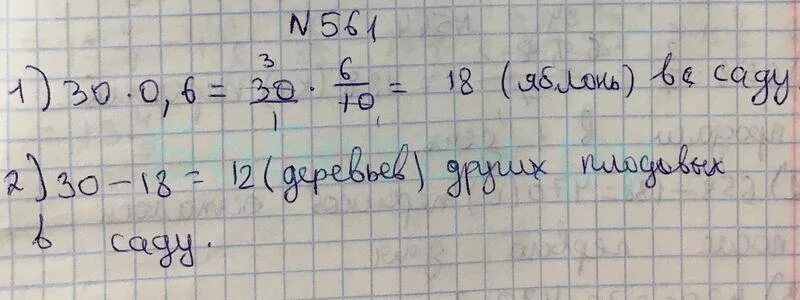 N 561
1) 30 · 0,6 = 30/1 · 6/10 = 18 (яблонь) в саду.
2) 30 - 18 = 12 (деревьев) других плодовых
в саду.